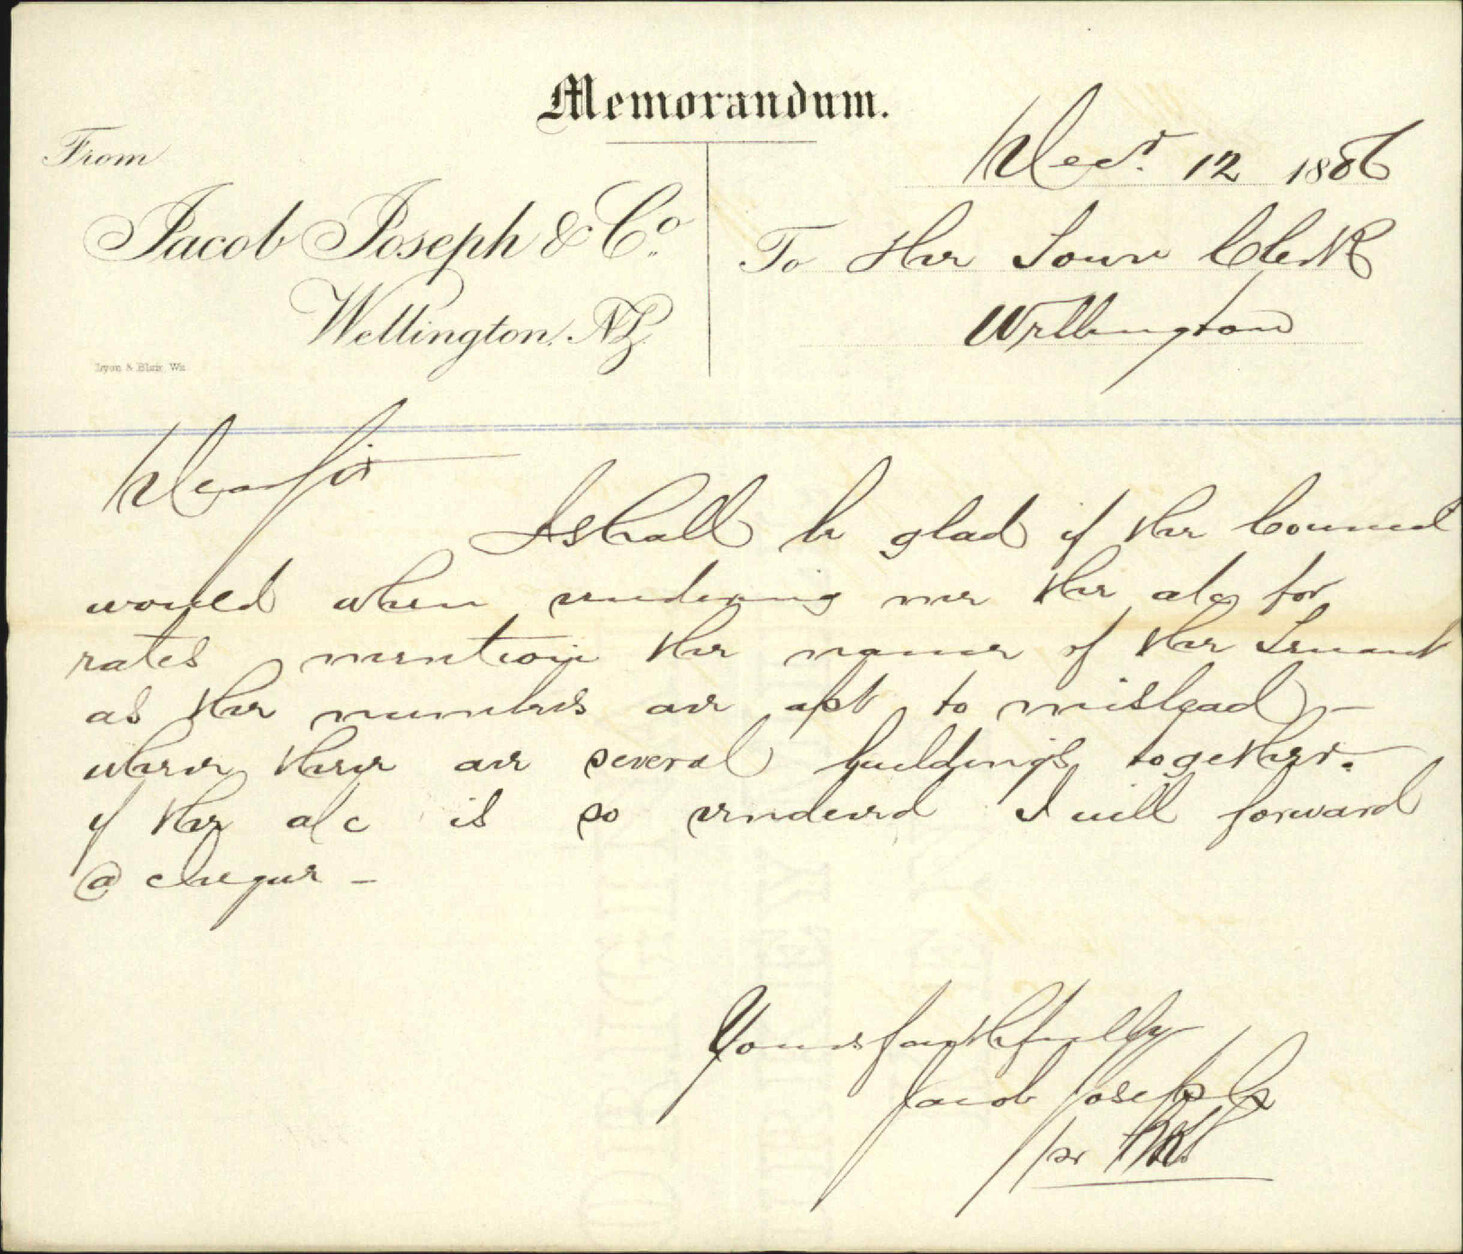 Memorandum.
From
Jacob Joseph & Co.
Wellington, N.Z.
Lyon & Blair, Wn
Decr. 12 1886
To The Town Clerk
Wellington
Dear Sir
I shall be glad if the Council
would when rendering me the a/c for
rates mention the name of the Tenant
as the numbers are apt to mislead -
where there are several buildings together.
if the a/c is so rendered I will forward
a cheque -
Yours faithfully
Jacob Joseph
per